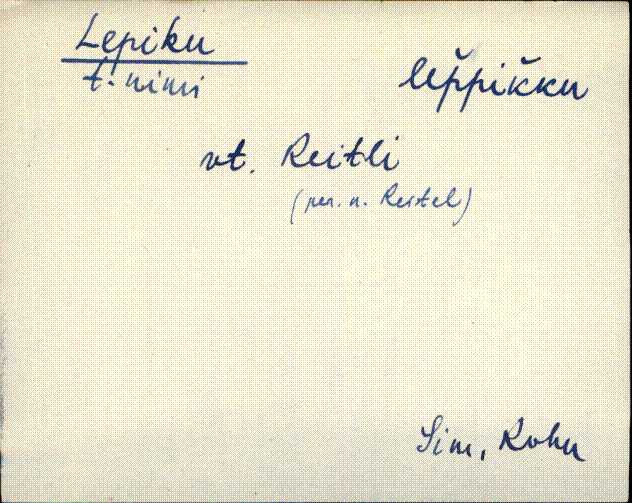 Lepiku
t. nimi
lep̌pik̆ku
vt. Reitli
(per. n. Reitel)
Sim, Rohu